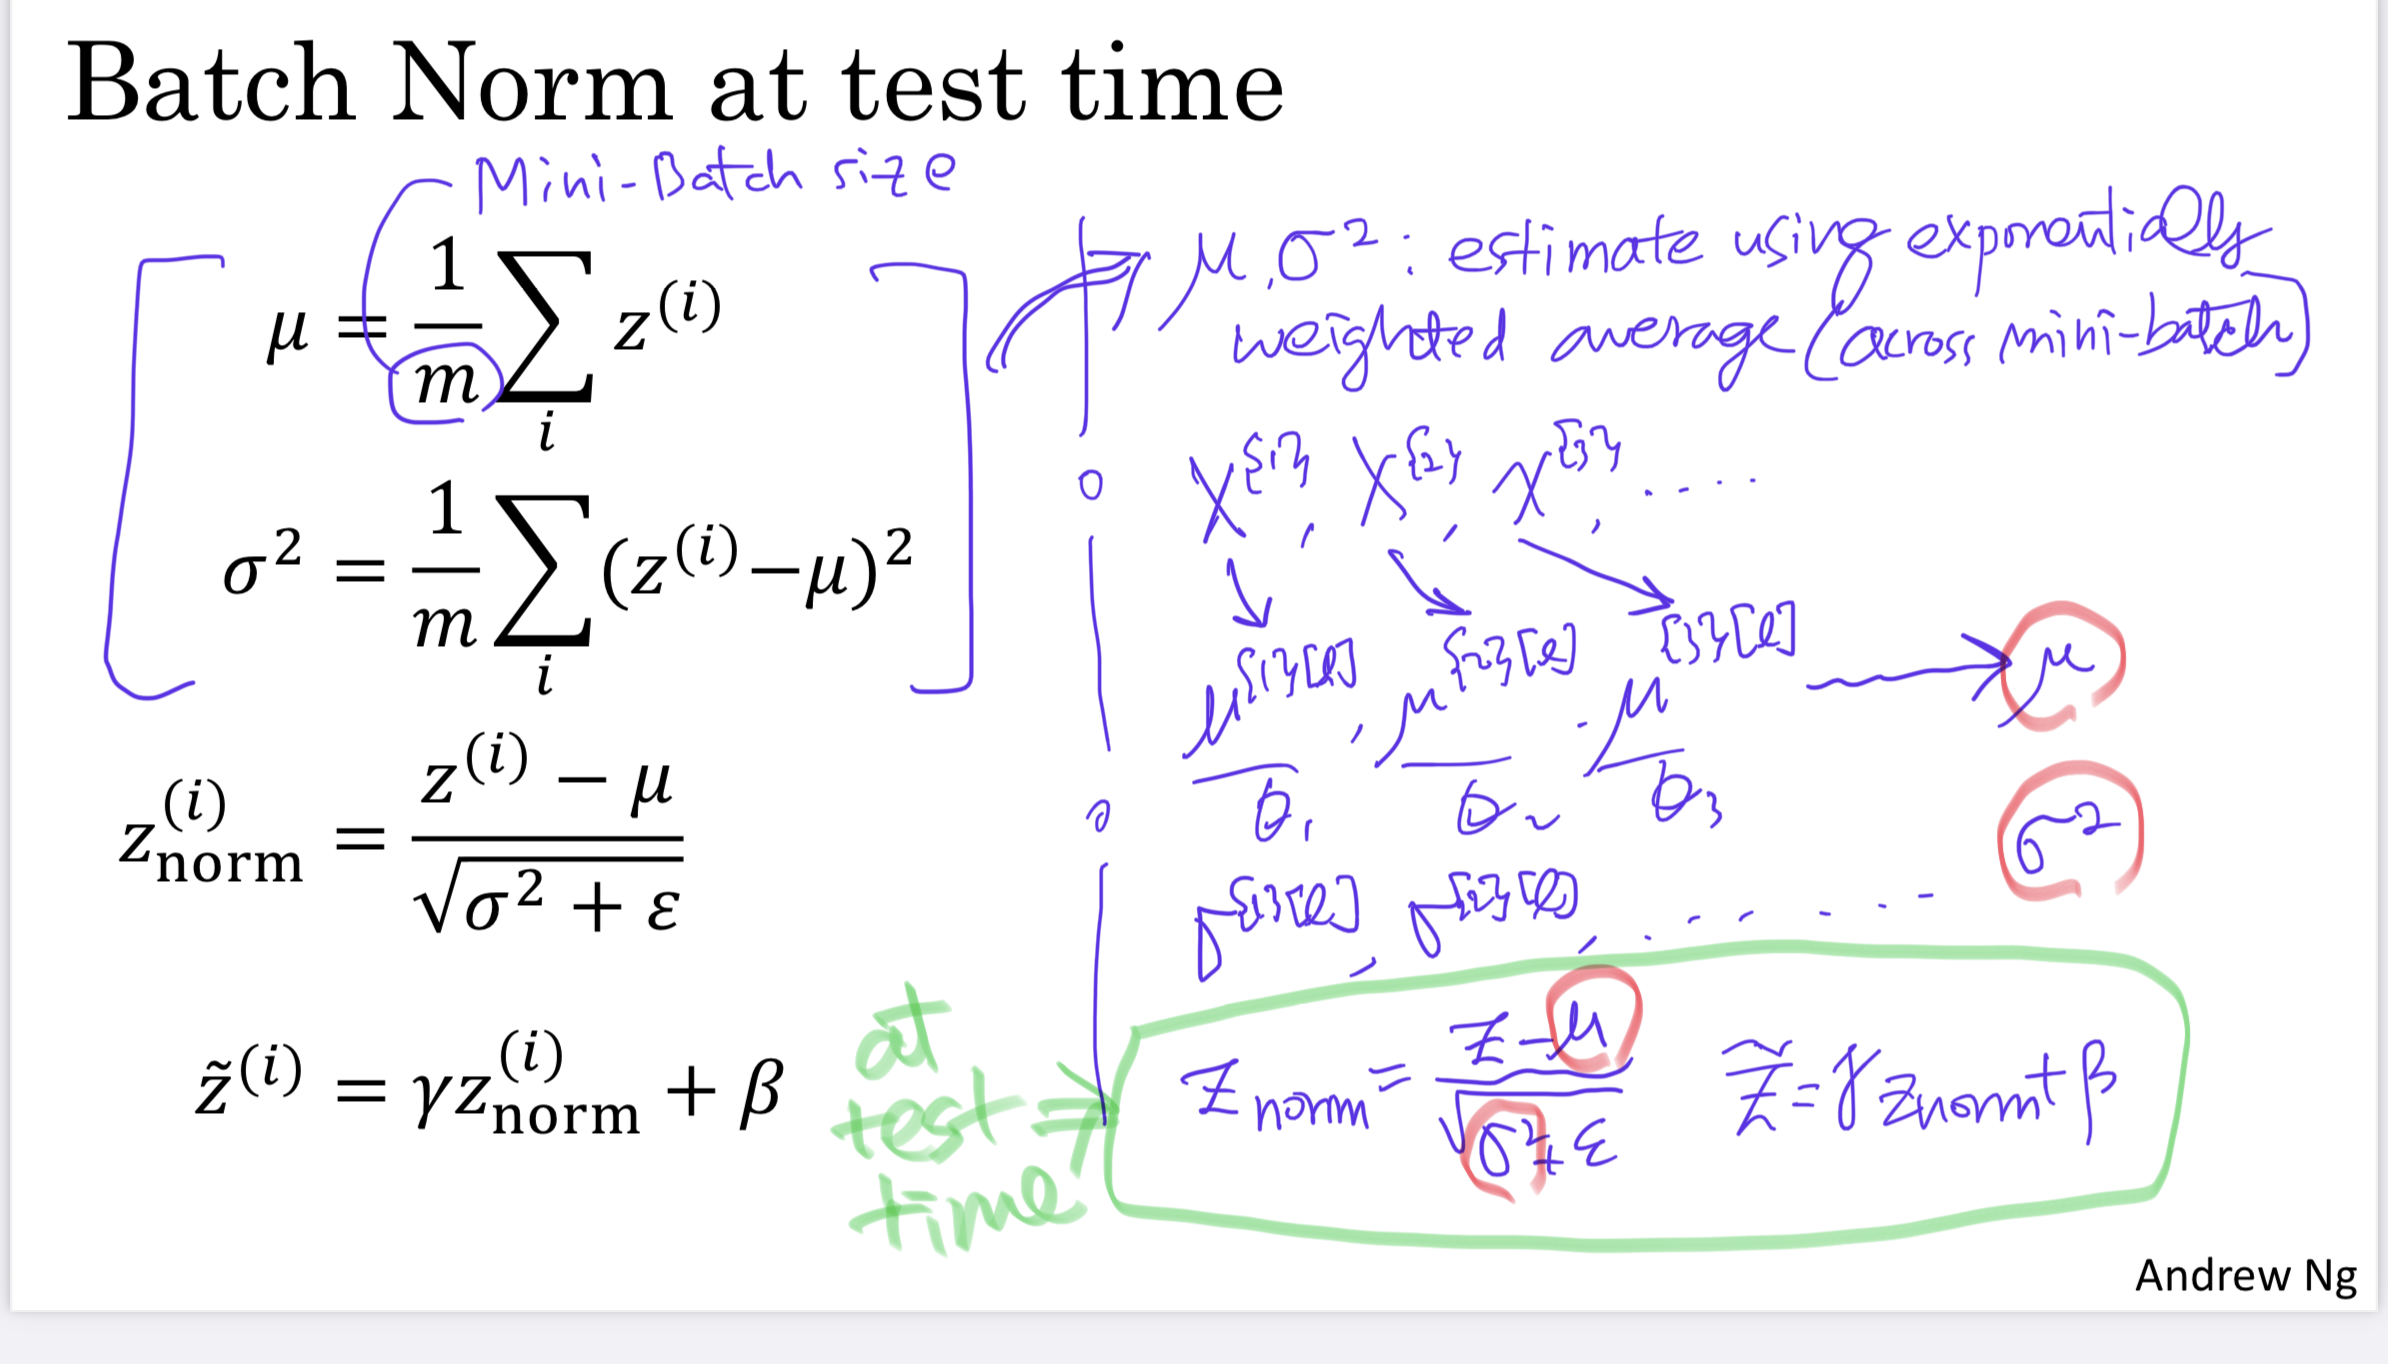 Batch Norm at test time
Mini-Batch size
μ = 1/m ∑_i z^(i)
σ² = 1/m ∑_i (z^(i) − μ)²
z_norm^(i) = (z^(i) − μ) / √(σ² + ε)
z̃^(i) = γz_norm^(i) + β
μ, σ² : estimate using exponentially
weighted average (across mini-batch)
X^{1}, X^{2}, X^{3}, ....
μ^{1}[l], μ^{2}[l], μ^{3}[l] → μ
θ₁ θ₂ θ₃
σ^{1}[l], σ^{2}[l], ..... σ²
at
test ⇒
time
z_norm = (z − μ) / √(σ² + ε) z̃ = γ z_norm + β
Andrew Ng